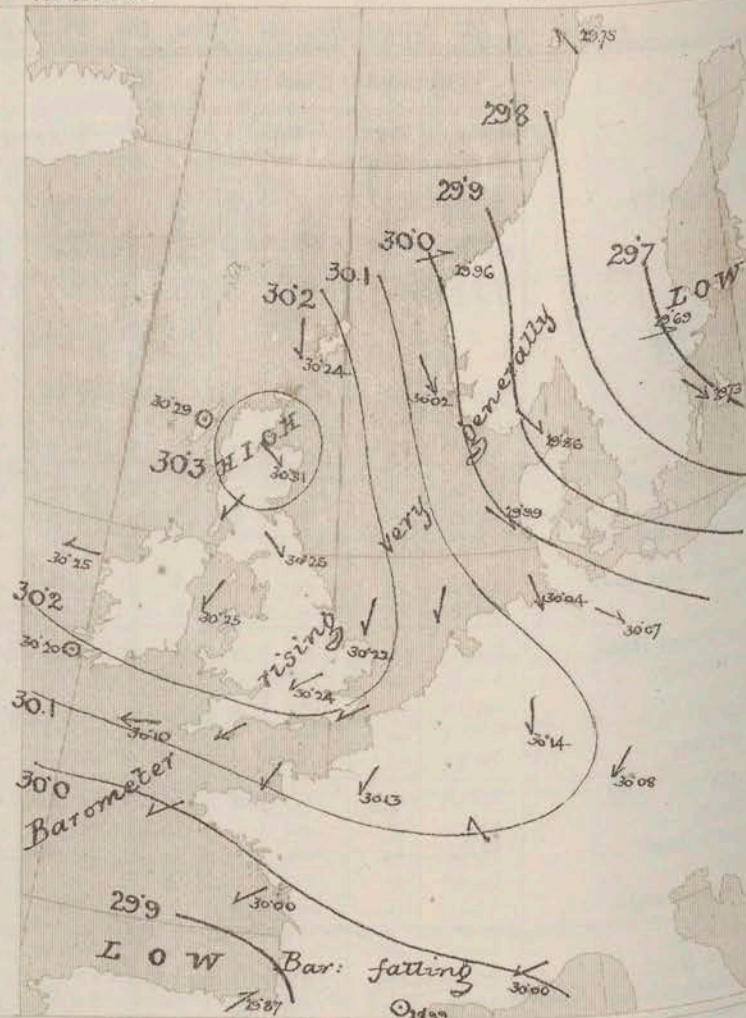 29.75
29.8
29.9
30.0
29.96
29.7
LOW
29.69
29.73
30.1
30.2
30.24
30.02
generally
29.86
30.29
HIGH
30.3
30.31
29.99
very
30.25
30.25
30.25
30.04
30.07
30.2
30.20
rising
30.23
30.24
30.1
30.10
30.14
30.08
30.0
Barometer
30.13
29.9
30.00
LOW
Bar: falling
30.00
29.87